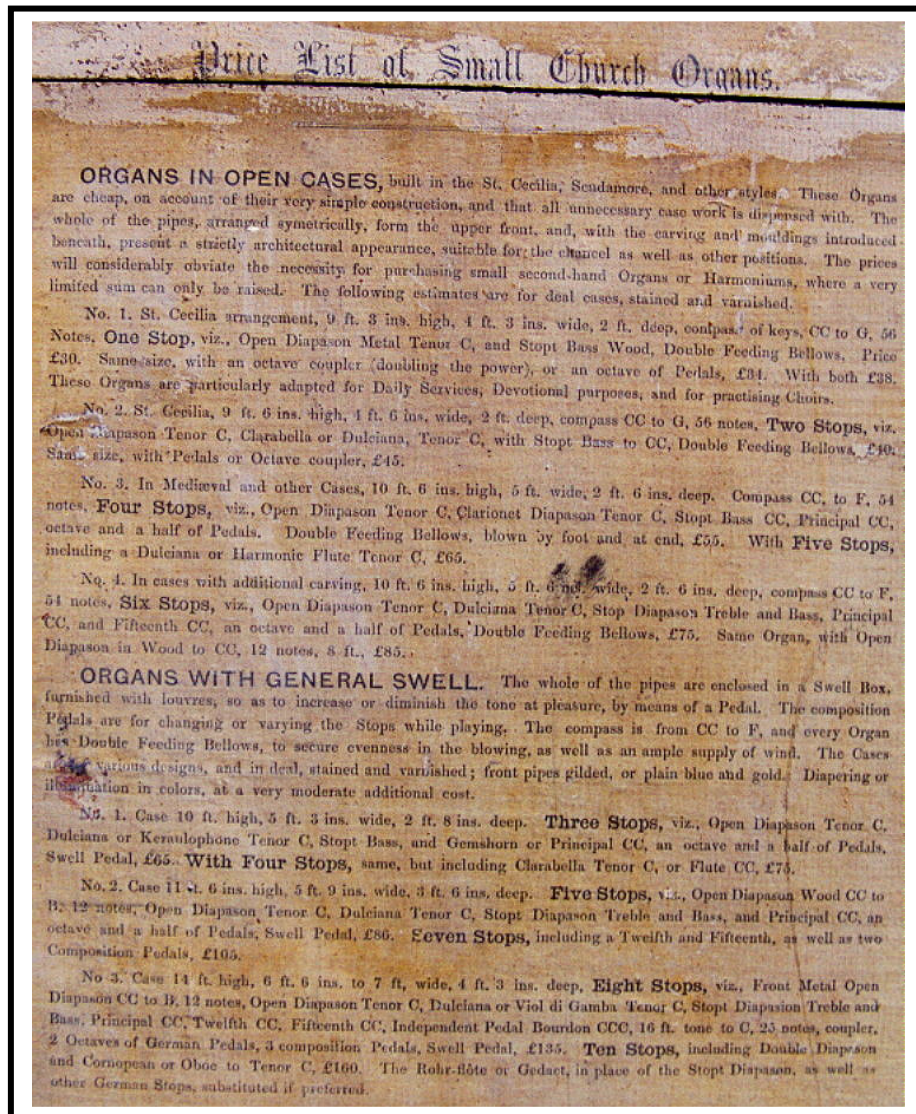 Price List of Small Church Organs.
ORGANS IN OPEN CASES, built in the St. Cecilia, Scudamore, and other styles. These Organs
are cheap, on account of their very simple construction, and that all unnecessary case work is dispensed with. The
whole of the pipes, arranged symetrically, form the upper front, and, with the carving and mouldings introduced
beneath, present a strictly architectural appearance, suitable for the chancel as well as other positions. The prices
will considerably obviate the necessity for purchasing small second-hand Organs or Harmoniums, where a very
limited sum can only be raised. The following estimates are for deal cases, stained and varnished.
No. 1. St. Cecilia arrangement, 9 ft. 3 ins. high, 4 ft. 3 ins. wide, 2 ft. deep, compass of keys, CC to G, 56
Notes, One Stop, viz., Open Diapason Metal Tenor C, and Stopt Bass Wood, Double Feeding Bellows, Price
£30. Same size, with an octave coupler (doubling the power), or an octave of Pedals, £34. With both £38.
These Organs are particularly adapted for Daily Services, Devotional purposes, and for practising Choirs.
No. 2. St. Cecilia, 9 ft. 6 ins. high, 4 ft. 6 ins, wide, 2 ft. deep, compass CC to G, 56 notes, Two Stops, viz.
Open Diapason Tenor C, Clarabella or Dulciana, Tenor C, with Stopt Bass to CC, Double Feeding Bellows, £40.
Same size, with Pedals or Octave coupler, £45.
No. 3. In Mediæval and other Cases, 10 ft. 6 ins. high, 5 ft. wide, 2 ft. 6 ins. deep. Compass CC, to F, 54
notes, Four Stops, viz., Open Diapason Tenor C, Clarionet Diapason Tenor C, Stopt Bass CC, Principal CC,
octave and a half of Pedals. Double Feeding Bellows, blown by foot and at end, £55. With Five Stops,
including a Dulciana or Harmonic Flute Tenor C, £65.
No. 4. In cases with additional carving, 10 ft. 6 ins. high, 5 ft. 6 wide, 2 ft. 6 ins. deep, compass CC to F,
54 notes, Six Stops, viz., Open Diapason Tenor C, Dulciana Tenor C, Stop Diapason Treble and Bass, Principal
CC, and Fifteenth CC, an octave and a half of Pedals, Double Feeding Bellows, £75. Same Organ, with Open
Diapason in Wood to CC, 12 notes, 8 ft., £85.
ORGANS WITH GENERAL SWELL. The whole of the pipes are enclosed in a Swell Box,
furnished with louvres, so as to increase or diminish the tone at pleasure, by means of a Pedal. The composition
Pedals are for changing or varying the Stops while playing. The compass is from CC to F, and every Organ
has Double Feeding Bellows, to secure evenness in the blowing, as well as an ample supply of wind. The Cases
various designs, and in deal, stained and varnished; front pipes gilded, or plain blue and gold. Diapering or
illumination in colors, at a very moderate additional cost.
No. 1. Case 10 ft. high, 5 ft. 3 ins. wide, 2 ft. 8 ins. deep. Three Stops, viz., Open Diapason Tenor C,
Dulciana or Keraulophone Tenor C, Stopt Bass, and Gemshorn or Principal CC, an octave and a half of Pedals,
Swell Pedal, £65. With Four Stops, same, but including Clarabella Tenor C, or Flute CC, £75.
No. 2. Case 11 ft. 6 ins. high, 5 ft. 9 ins. wide, 3 ft. 6 ins. deep. Five Stops, viz., Open Diapason Wood CC to
B, 12 notes, Open Diapason Tenor C, Dulciana Tenor C, Stopt Diapason Treble and Bass, and Principal CC, an
octave and a half of Pedals, Swell Pedal, £86. Seven Stops, including a Twelfth and Fifteenth, as well as two
Composition Pedals, £105.
No 3. Case 14 ft. high, 6 ft. 6 ins. to 7 ft, wide, 4 ft. 3 ins. deep, Eight Stops, viz., Front Metal Open
Diapason CC to B, 12 notes, Open Diapason Tenor C, Dulciana or Viol di Gamba Tenor C, Stopt Diapasion Treble and
Bass, Principal CC, Twelfth CC, Fifteenth CC, Independent Pedal Bourdon CCC, 16 ft. tone to C, 25 notes, coupler,
2 Octaves of German Pedals, 3 composition Pedals, Swell Pedal, £135. Ten Stops, including Double Diapason
and Cornopean or Oboe to Tenor C, £160. The Rohr-flöte or Gedact, in place of the Stopt Diapason, as well as
other German Stops, substituted if preferred.